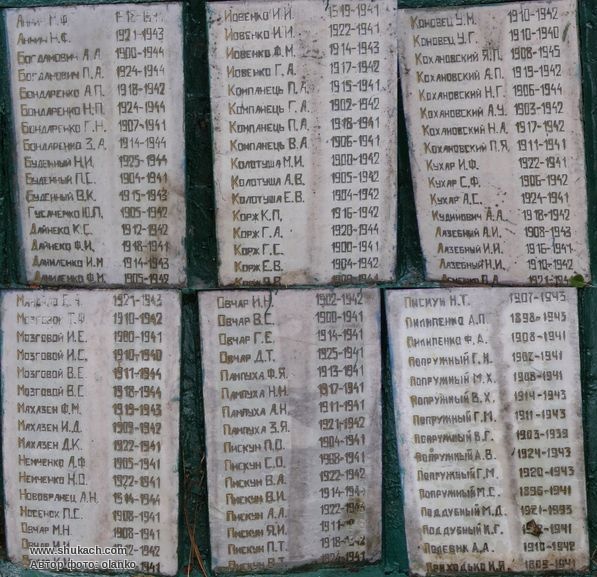 Аннич Н.Ф. 1921-1943
Богданович А.А. 1900-1944
Богданович П.А. 1924-1944
Бондаренко А.П. 1918-1942
Бондаренко Н.П. 1924-1944
Бондаренко Г.Н. 1907-1941
Бондаренко З.А. 1914-1944
Буденный Н.И. 1925-1944
Буденный П.С. 1904-1941
Буденный В.К. 1915-1943
Гусаченко Ю.П. 1905-1942
Дайнеко К.С. 1912-1942
Дайнеко Ф.И. 1918-1941
Даниленко И.М 1914-1943
Даниленко Ф.М. 1905-1942
Йовенко И.И. 1919-1941
Йовенко И.И. 1922-1941
Йовенко Ф.М. 1914-1943
Йовенко Г.А. 1917-1942
Компанець П.А. 1915-1941
Компанець Г.А. 1902-1942
Компанець П.А. 1918-1941
Компанець В.А. 1906-1941
Колотуша М.И. 1900-1942
Колотуша А.В. 1905-1942
Колотуша Е.В. 1904-1942
Корж К.П. 1916-1942
Корж Г.А. 1920-1944
Корж Г.С. 1900-1941
Корж Е.В. 1904-1942
Корж
Коновец У.М. 1910-1942
Коновец У.Г. 1910-1940
Кохановский Я.П. 1908-1945
Кохановский А.П. 1919-1942
Кохановский Н.Г. 1906-1944
Кохановский А.У. 1903-1942
Кохановский Н.А. 1917-1942
Кохановский П.Я. 1911-1941
Кухар И.Ф. 1922-1941
Кухар С.Ф. 1906-1942
Кухар А.С. 1924-1941
Кудинович А.А. 1918-1942
Лазебный А.И. 1908-1943
Лазебный И.И. 1916-1941
Лазебный Н.И. 1910-1942
1921-1943
Мозговой Г.Ф. 1910-1942
Мозговой И.Е. 1900-1941
Мозговой И.С. 1910-1940
Мозговой В.Е. 1911-1944
Мозговой В.С. 1918-1944
Махазен Ф.М. 1919-1943
Махазен И.Д. 1909-1942
Махазен Д.К. 1922-1941
Немченко А.Ф. 1905-1941
Немченко Н.О. 1922-1941
Новобранец А.Н. 1944
Носенок П.Е. 1908-1941
Овчар М.Н. 1908-1941
Овчар
Овчар И.Н. 1902-1942
Овчар В.С. 1900-1941
Овчар Г.Е. 1914-1941
Овчар Д.Т. 1925-1941
Пампуха Ф.Я. 1913-1941
Пампуха Н.Н. 1917-1941
Пампуха А.Н. 1911-1941
Пампуха З.Я. 1921-1942
Пискун П.О. 1904-1941
Пискун С.О. 1908-1941
Пискун В.А. 1922-1942
Пискун В.И. 1914
Пискун А.А. 1922-1941
Пискун Я.И. 1911
Пискун П.Т. 1918-1942
Пискун 1924-1941
Пискун Н.Т. 1907-1943
Пилипенко А.П. 1898-1943
Пилипенко Ф.А. 1908-1941
Попружный Г.И. 1902-1941
Попружный М.Х. 1908-1941
Попружный В.Х. 1914-1943
Попружный Г.М. 1911-1943
Попружный В.Г. 1903-1939
Попружный А.В. 1924-1943
Попружный Г.М. 1920-1943
Попружный М.С. 1896-1941
Поддубный М.Д. 1921-1993
Поддубный К.Г. 1941
Подевик А.А. 1910-1943
Приходько Н.И. 1899-1941
www.shukach.com
Автор фото: olanko